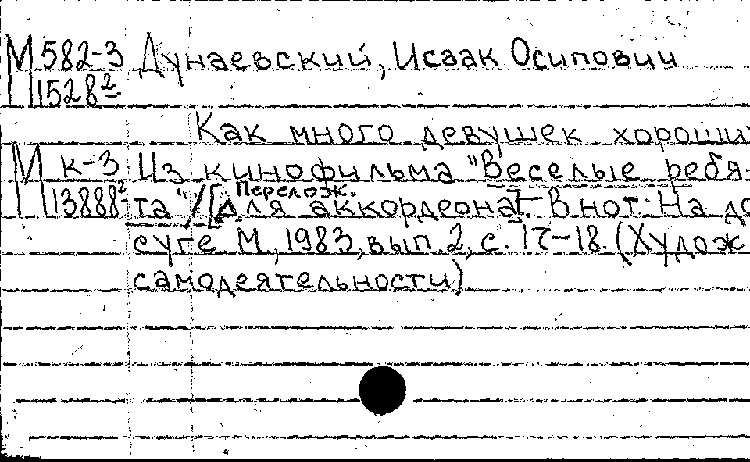 М 582-3 Дунаевский, Исаак Осипович
П 1528²
Как много девушек хороших
М к-3 Из кинофильма "Веселые ребя-
П 13888² та"/[Перелож. для аккордеона].- В нот: На до
суге М., 1983, вып. 2, с. 17-18. (Худож
самодеятельности)